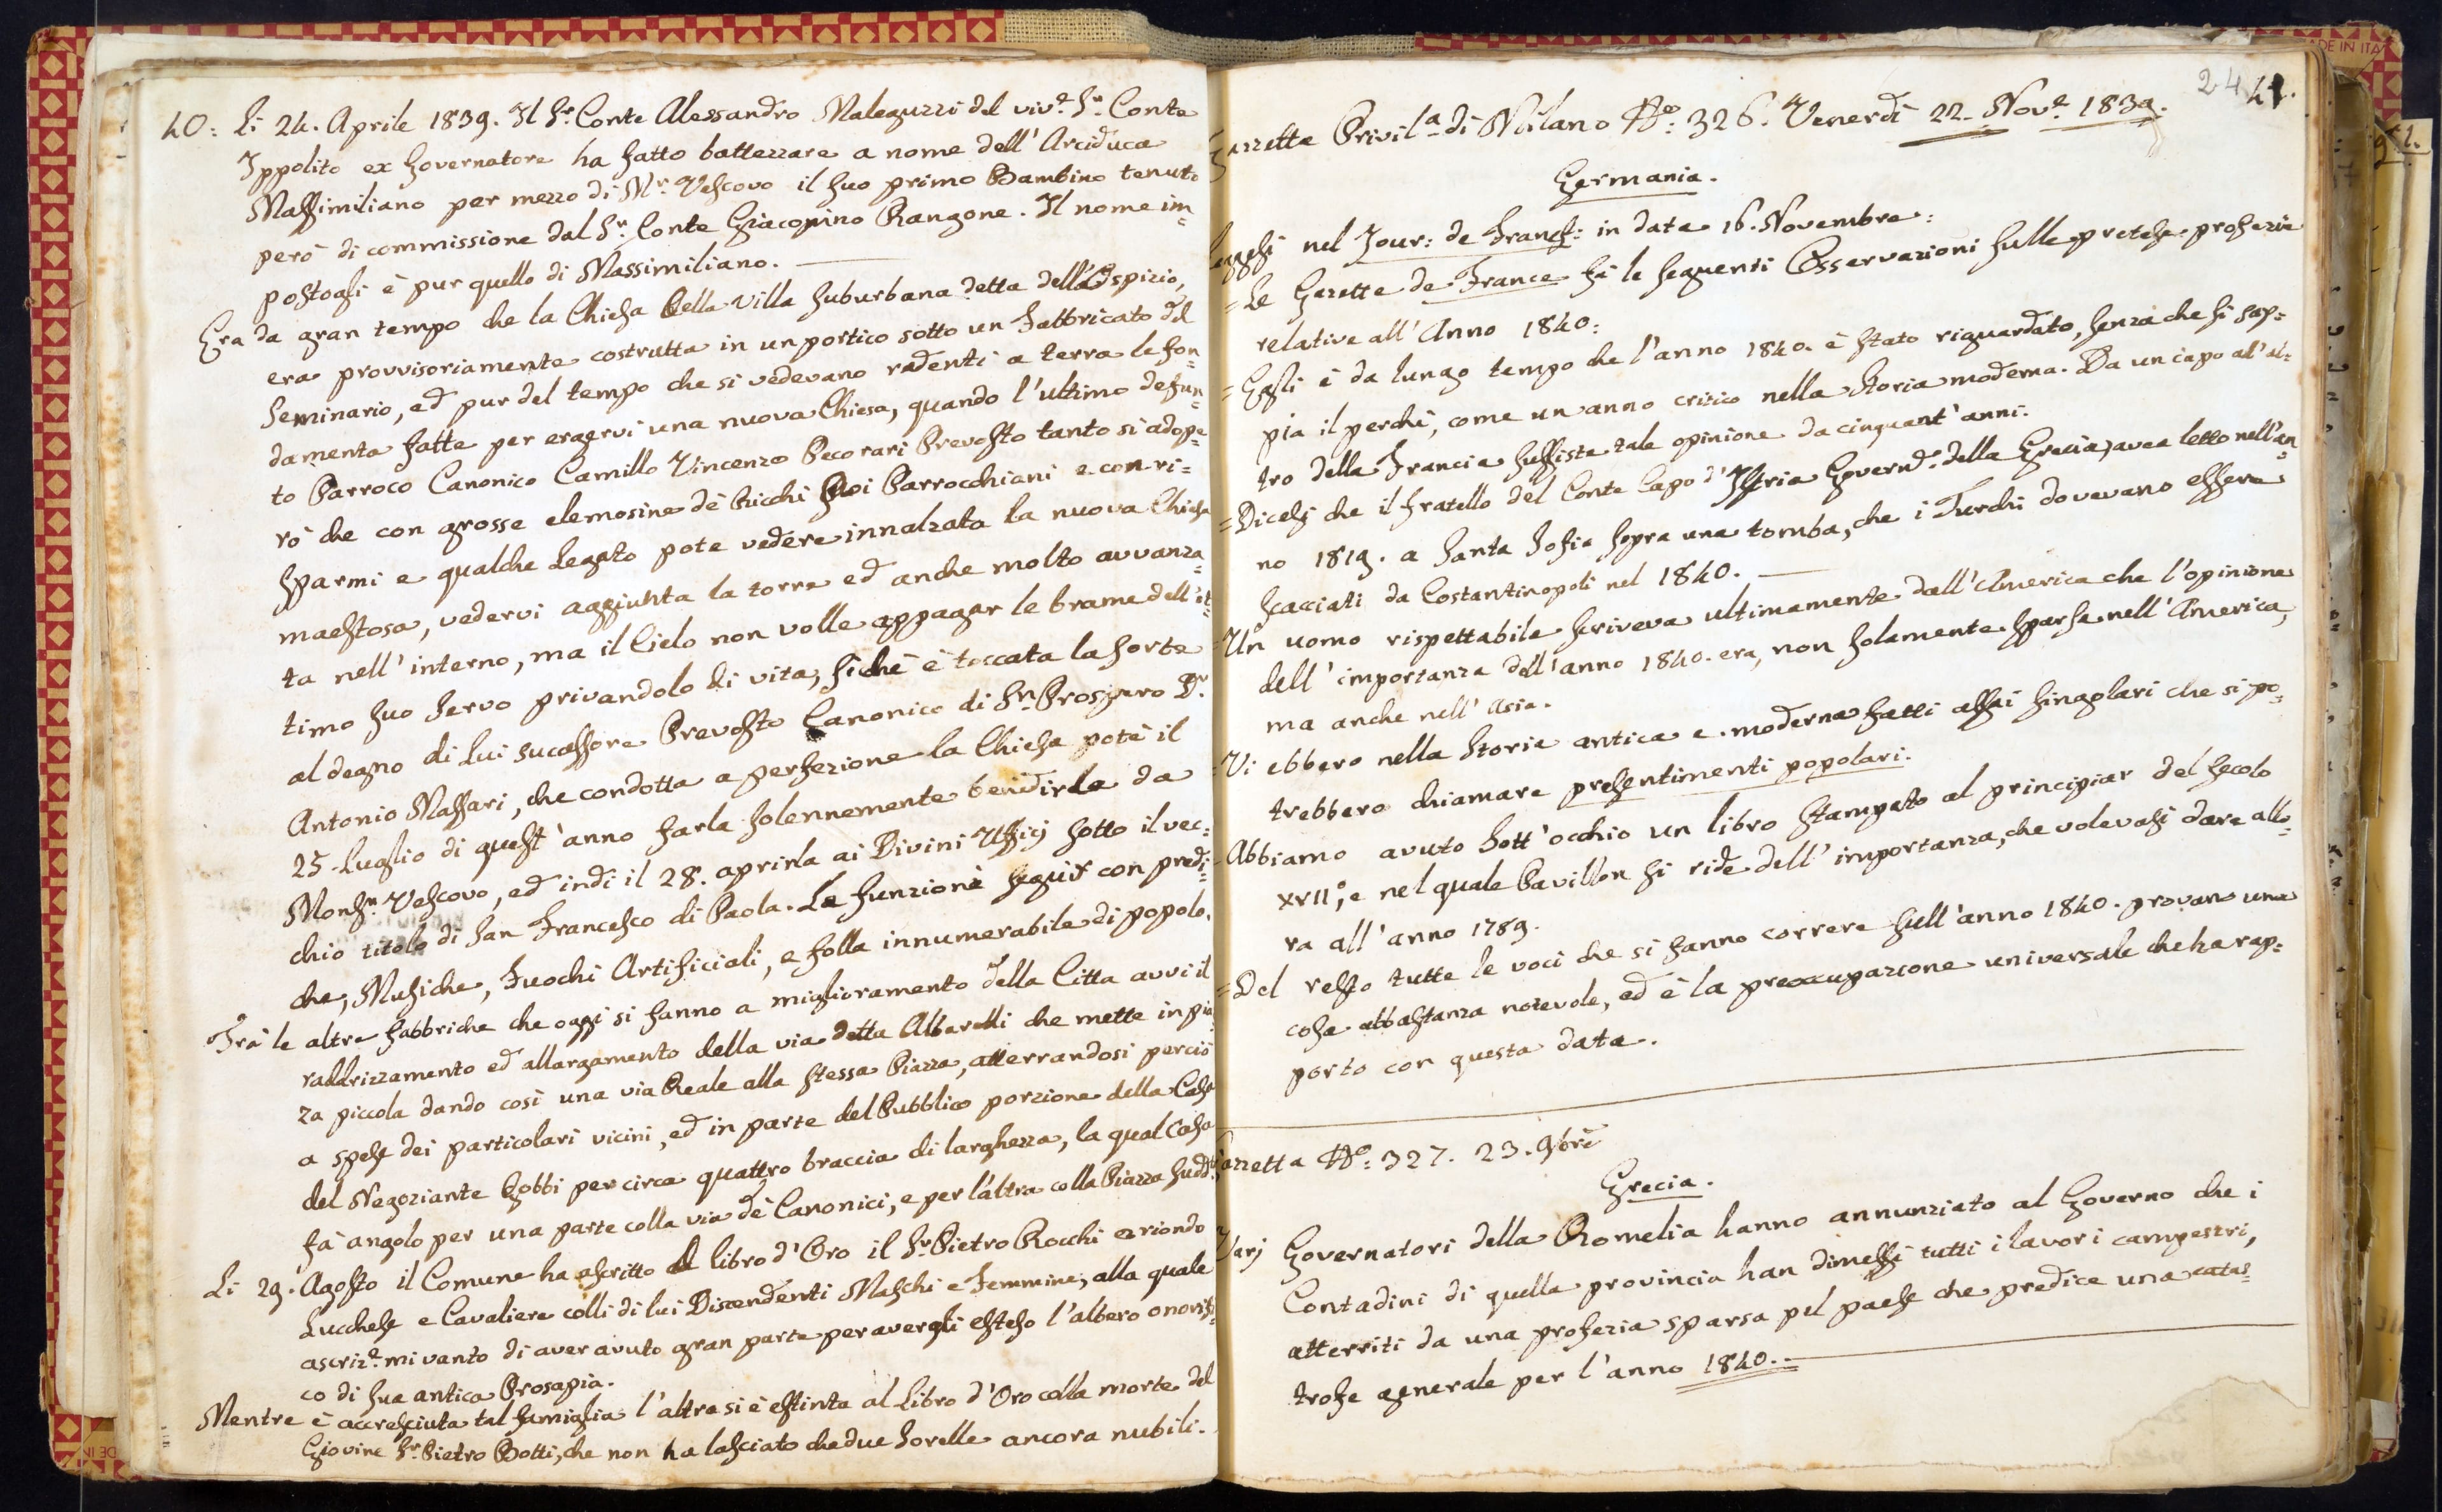 40: Li 24. Aprile 1839. Il Sr. Conte Alessandro Maleguzzi del vive. Sr. Conte
Ippolito ex Governatore ha fatto battezzare a nome dell'Arciduca
Massimiliano per mezzo di Mr. Vescovo il suo primo Bambino tenuto
però di commissione dal Sr. Conte Giacopino Rangone. Il nome im=
postogli è pur quello di Massimiliano.
Era da gran tempo che la Chiesa della Villa suburbana detta dell'Ospizio,
era provvisoriamente costrutta in un portico sotto un Fabbricato del
Seminario, ed pur del tempo che si vedevano radenti a terra le fon=
damenta fatte per ergervi una nuova Chiesa, quando l'ultimo defun=
to Parroco Canonico Camillo Vincenzo Pecorari Prevosto tanto si adope=
rò che con grosse elemosine de Ricchi suoi Parrocchiani e con ri=
sparmi e qualche Legato pote vedere innalzata la nuova Chiesa
maestosa, vedervi aggiunta la torre ed anche molto avvanza=
ta nell'interno, ma il Cielo non volle appagar le brame dell'ot=
timo suo servo privandolo di vita, sichè è toccata la sorte
al degno di Lui successore Prevosto Canonico di Sn. Prospero Dr.
Antonio Massari, che condotta a perfezione la Chiesa potè il
25. Luglio di quest'anno farla solennemente benedirla da
Monsr. Vescovo, ed indi il 28. aprirla ai Divini Ufficj sotto il vec=
chio titolo di San Francesco di Paola. La funzione seguì con predi=
che, Musiche, Fuochi Artificiali, e folla innumerabile di popolo.
Trà le altre fabbriche che oggi si fanno a miglioramento della Citta avvi il
raddrizzamento ed allargamento della via detta Albarelli che mette in piaz=
za piccola dando così una via Reale alla stessa Piazza, atterrandosi perciò
a spese dei particolari vicini, ed in parte del Pubblico porzione della Casa
del Negoziante Gobbi per circa quattro braccia di larghezza, la qual Casa
fà angolo per una parte colla via de Canonici, e per l'altra colla Piazza sudda.
Li 29. Agosto il Comune ha ascritto al libro d'Oro il Sr. Pietro Rocchi oriondo
Lucchese e Cavaliere colli di lui Discendenti Maschi e Femmine, alla quale
ascrize. mi vanto di aver avuto gran parte per avergli esteso l'albero onorifi=
co di sua antica Prosapia.
Mentre è accresciuta tal famiglia l'altra si è estinta al Libro d'Oro colla morte del
Giovine Sr. Pietro Botti, che non ha lasciato che due Sorelle ancora nubili.
24 41.
Gazzetta Privila. di Milano No: 326. Venerdì 22. Nove. 1839.
Germania.
Leggesi nel Jour: de Francf: in data 16. Novembre:
= La Gazette de France fà le seguenti Osservazioni sulle pretese profezie
relative all'Anno 1840:
= Egli è da lungo tempo che l'anno 1840. è stato riguardato, senza che si sap=
pia il perchè, come un anno critico nella Storia moderna. Da un capo all'al=
tro della Francia sussiste tale opinione da cinquant'anni.
= Dicesi che il fratello del Conte Capo d'Istria Governe. della Grecia, avea letto nell'an=
no 1819. a Santa Sofia sopra una tomba, che i Turchi dovevano essere
scacciati da Costantinopoli nel 1840.
= Un uomo rispettabile scriveva ultimamente dall'America che l'opinione
dell'importanza dell'anno 1840. era, non solamente sparsa nell'America,
ma anche nell'Asia.
= Vi ebbero nella Storia antica e moderna fatti assai singolari che si po=
trebbero chiamare presentimenti popolari.
= Abbiamo avuto sott'occhio un libro stampato al principiar del secolo
XVII°, e nel quale Pavillon si ride dell'importanza, che volevasi dare allo=
ra all'anno 1789.
= Del resto tutte le voci che si fanno correre sull'anno 1840. provano una
cosa abbastanza notevole, ed è la preoccupazione universale che ha rap=
porto con questa data.
Gazzetta No: 327. 23. 9bre
Grecia.
Varj Governatori della Romelia hanno annunziato al Governo che i
Contadini di quella provincia han dimessi tutti i lavori campestri,
atterriti da una profezia sparsa pel paese che predice una catas=
trofe generale per l'anno 1840.